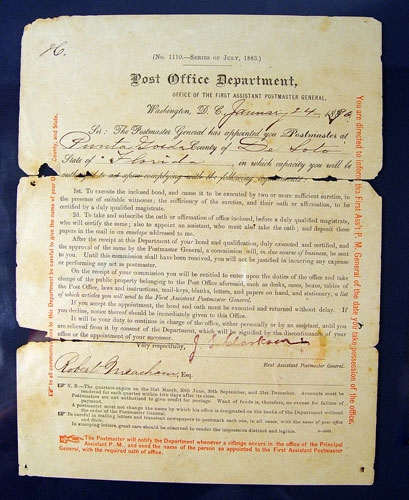 (No. 1110.—Series of July, 1883.)
Post Office Department,
OFFICE OF THE FIRST ASSISTANT POSTMASTER GENERAL,
Washington, D. C., January 24, 189
Sir: The Postmaster General has appointed you Postmaster at
Punta Gorda County of De Soto
State of Florida, in which capacity you will be
authorized to act upon complying with the following requirements:
1st. To execute the inclosed bond, and cause it to be executed by two or more sufficient sureties, in
the presence of suitable witnesses; the sufficiency of the sureties, and their oath or affirmation, to be
certified by a duly qualified magistrate.
2d. To take and subscribe the oath or affirmation of office inclosed, before a duly qualified magistrate,
who will certify the same; also to appoint an assistant, who must also take the oath; and deposit these
papers in the mail in an envelope addressed to me.
After the receipt at this Department of your bond and qualification, duly executed and certified, and
the approval of the same by the Postmaster General, a commission, will, in due course of business, be sent
to you. Until this commission shall have been received, you will not be justified in incurring any expense
or performing any act as postmaster.
On the receipt of your commission you will be entitled to enter upon the duties of the office and take
charge of the public property belonging to the Post Office aforesaid, such as desks, cases, boxes, tables of
the Post Office, laws and instructions, mail-keys, blanks, letters, and papers on hand, and stationery, a list
of which articles you will send to the First Assistant Postmaster General.
If you accept the appointment, the bond and oath must be executed and returned without delay. If
you decline, notice thereof should be immediately given to this Department.
It will be your duty to continue in charge of the office, either personally or by an assistant, until you
are relieved from it by consent of the Department, which will be signified by the discontinuance of your
office or the appointment of your successor.
Very respectfully,
J. S. Clarkson
First Assistant Postmaster General.
Robert Meacham, Esq.
N. B.—The quarters expire on the 31st March, 30th June, 30th September, and 31st December. Accounts must be
rendered for each quarter within two days after its close.
Postmasters are not authorized to give credit for postage. Want of funds is, therefore, no excuse for failure of
payment.
A postmaster must not change the name by which his office is designated on the books of the Department without
the order of the Postmaster General.
Be careful in mailing letters and transient newspapers to postmark each one, in all cases, with the name of your office
and State.
In stamping letters, great care should be observed to render the impression distinct and legible.
The Postmaster will notify the Department whenever a change occurs in the office of the Principal
Assistant P. M., and send the name of the person so appointed to the First Assistant Postmaster
General, with the required oath of office.
You are directed to inform the First Ass't P. M. General of the date you take possession of the office.
In all communications to this Department be careful to give the name of your Office, County, and State.